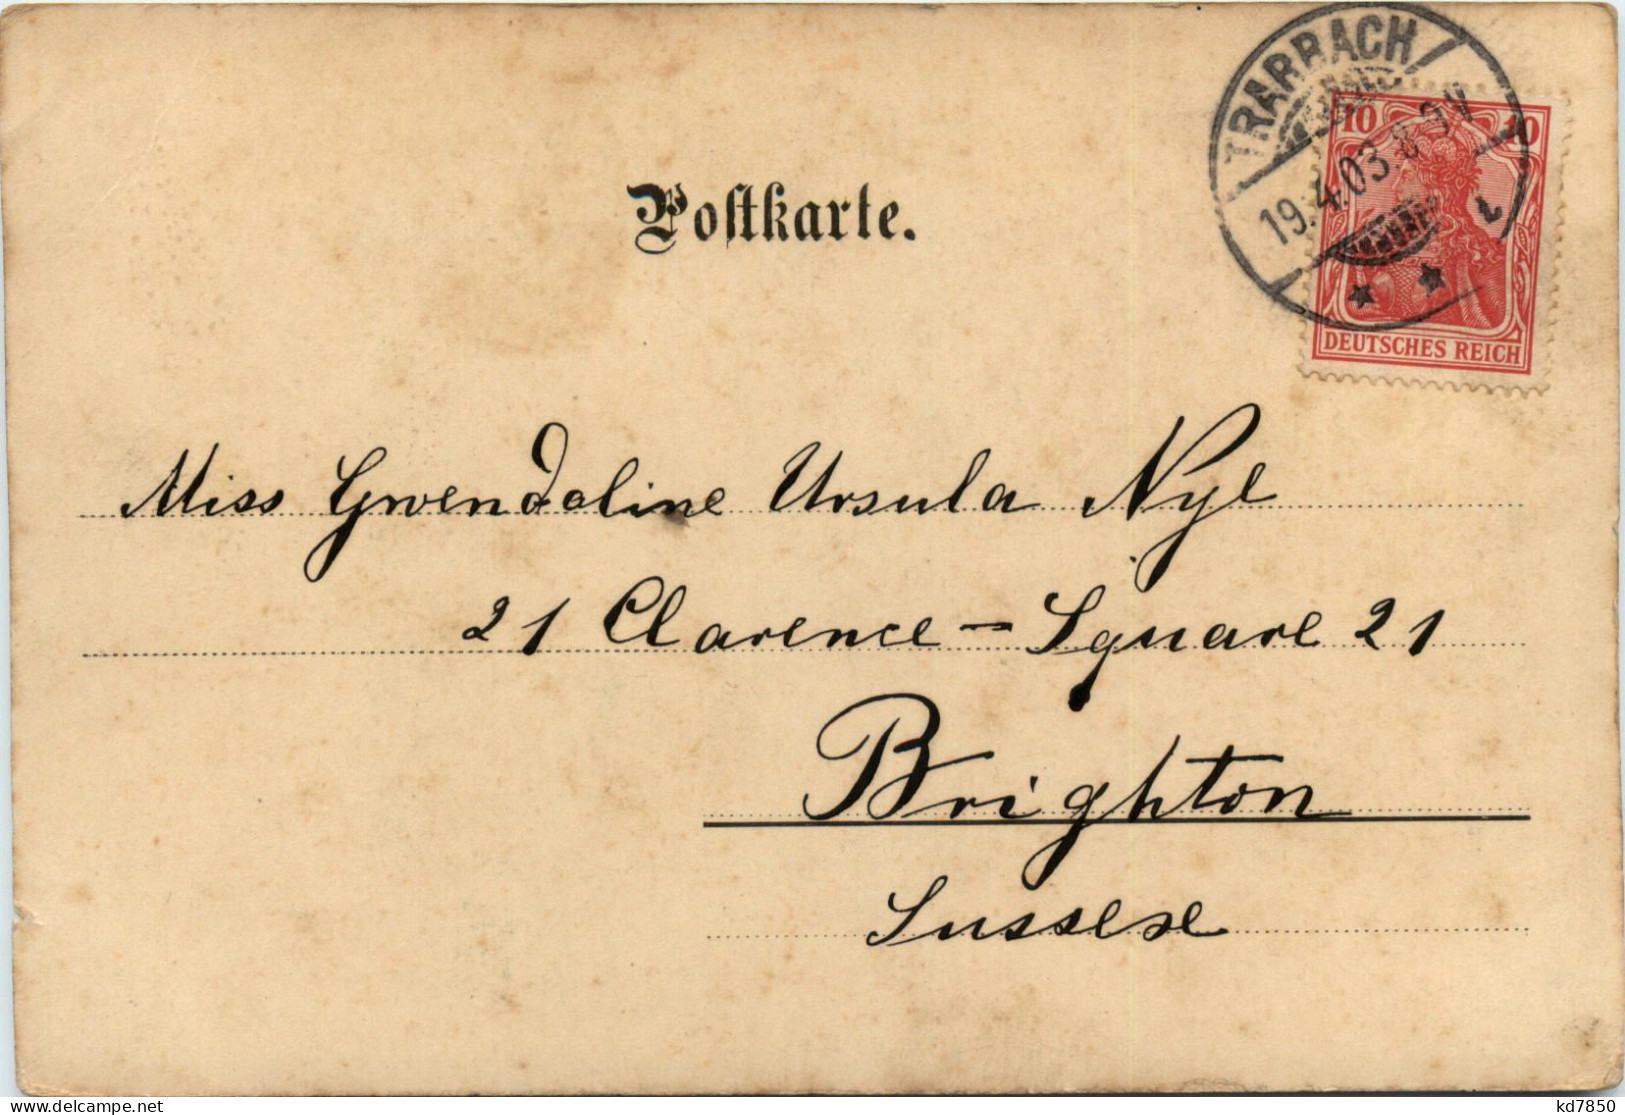 TRARBACH
19.4.03. 8-9V
10 10
DEUTSCHES REICH
Postkarte.
Miss Gwendoline Ursula Nye
21 Clarence-Square 21
Brighton
Sussex
kd7850